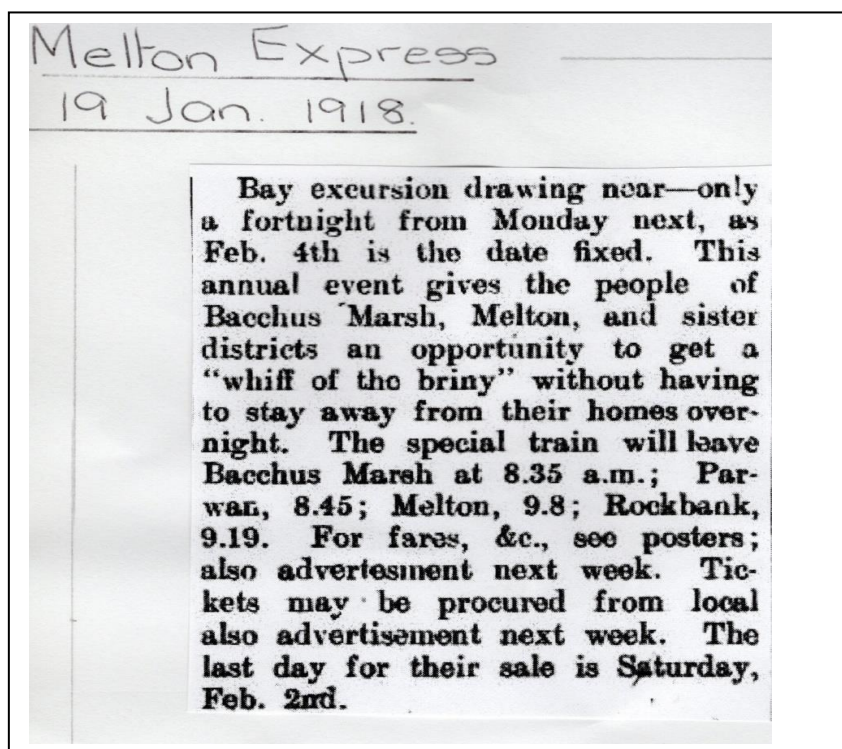 Melton Express
19 Jan. 1918.
Bay excursion drawing near—only
a fortnight from Monday next, as
Feb. 4th is the date fixed. This
annual event gives the people of
Bacchus Marsh, Melton, and sister
districts an opportunity to get a
“whiff of the briny” without having
to stay away from their homes over-
night. The special train will leave
Bacchus Marsh at 8.35 a.m.; Par-
wan, 8.45; Melton, 9.8; Rockbank,
9.19. For fares, &c., see posters;
also advertesment next week. Tic-
kets may be procured from local
also advertisement next week. The
last day for their sale is Saturday,
Feb. 2nd.